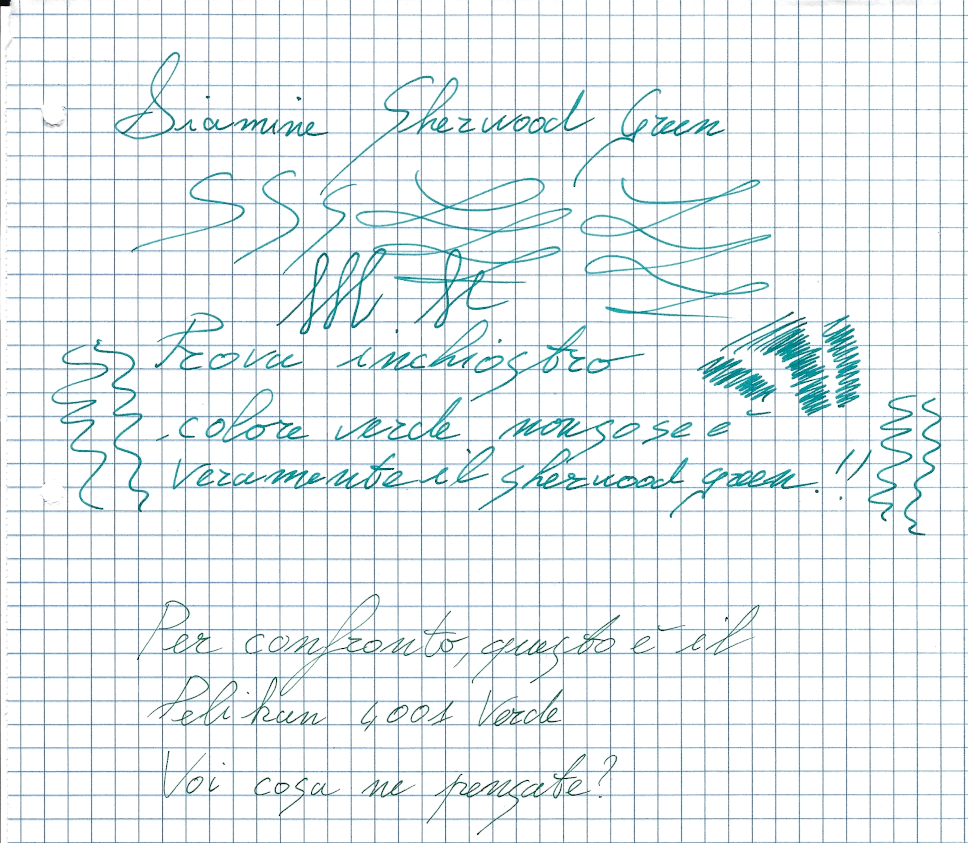 Diamine Sherwood Green
Prova inchiostro
colore verde nonsose è
veramente il sherwood green!!
Per confronto, questo è il
Pelikan 4001 Verde
Voi cosa ne pensate?